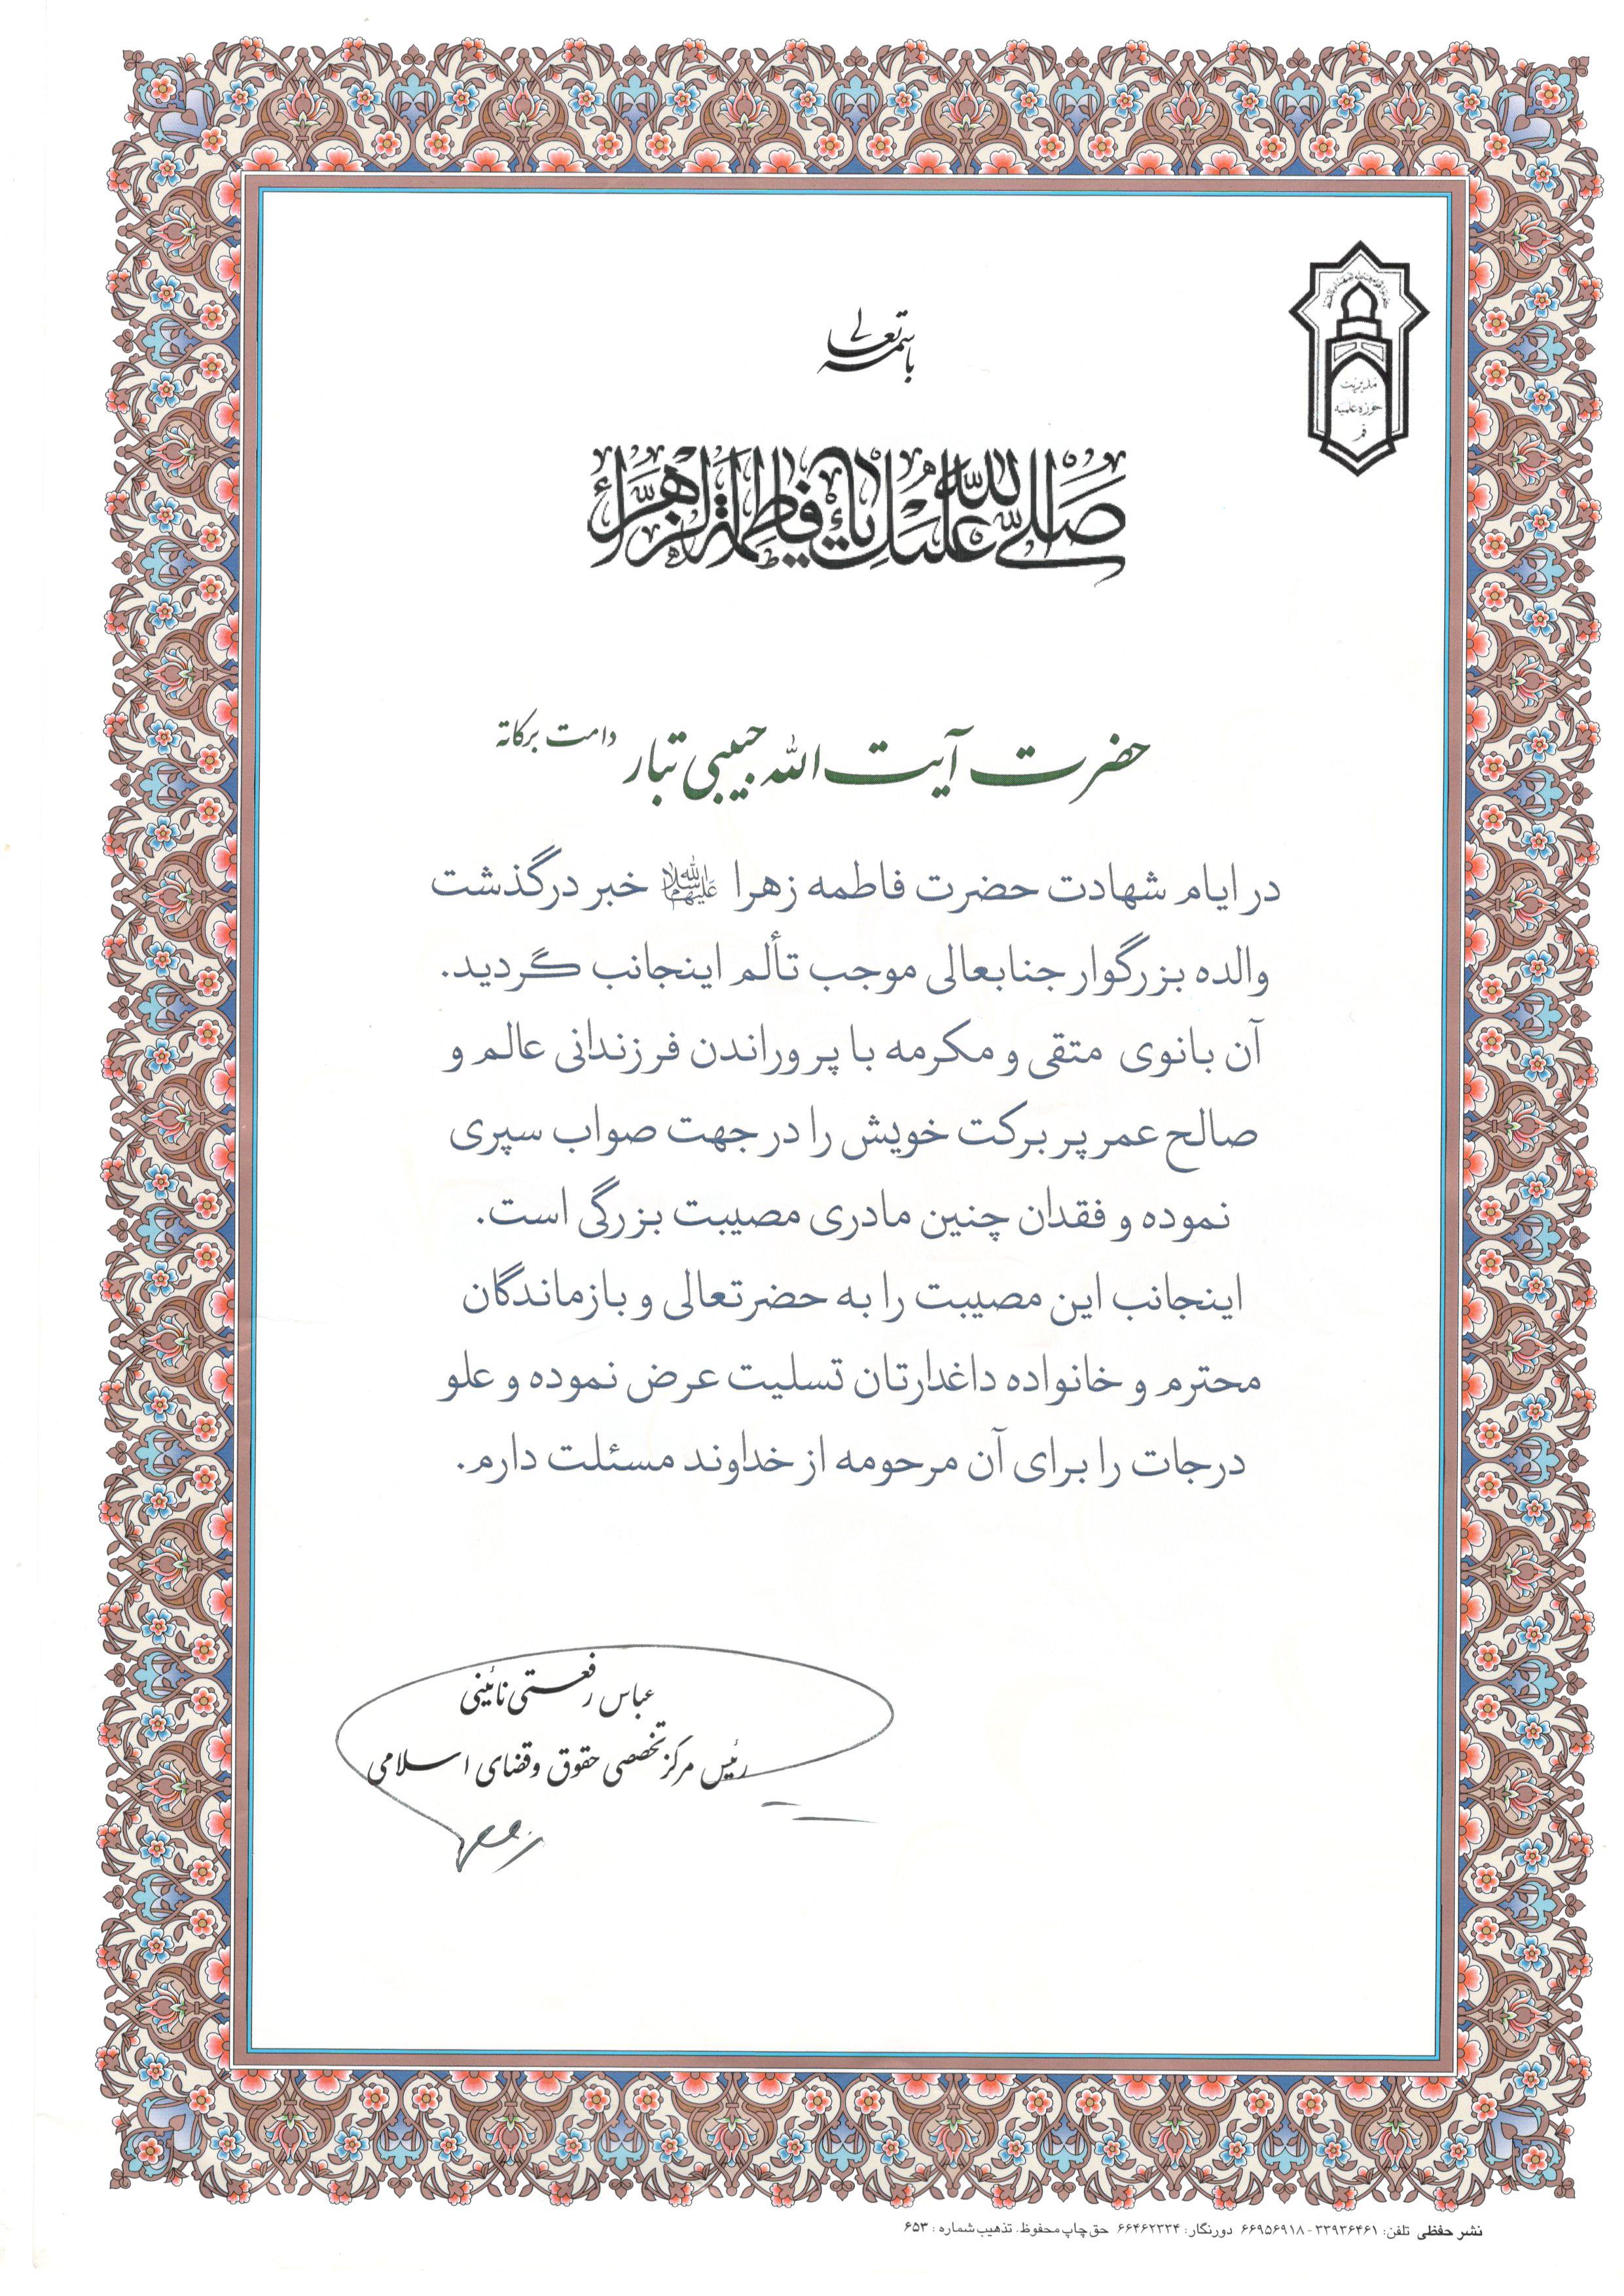 باسمه تعالی
مدیریت
حوزه علمیه
قم
صَلَّی اللهُ عَلَیْكِ یا فاطِمَةُ الزَّهْراءُ
حضرت آیت الله حبیبی تبار دامت برکاته
در ایام شهادت حضرت فاطمه زهرا علیهاسلام الله خبر درگذشت
والده بزرگوار جنابعالی موجب تألم اینجانب گردید.
آن بانوی متقی و مکرمه با پروراندن فرزندانی عالم و
صالح عمر پر برکت خویش را در جهت صواب سپری
نموده و فقدان چنین مادری مصیبت بزرگی است.
اینجانب این مصیبت را به حضرتعالی و بازماندگان
محترم و خانواده داغدارتان تسلیت عرض نموده و علو
درجات را برای آن مرحومه از خداوند مسئلت دارم.
عباس رفعتی نائینی
رئیس مرکز تخصصی حقوق و قضای اسلامی
نشر حفظی تلفن: ۳۳۹۳۶۴۶۱ - ۶۶۹۵۶۹۱۸ دورنگار: ۶۶۴۶۲۳۳۴ حق چاپ محفوظ. تذهیب شماره: ۶۵۳